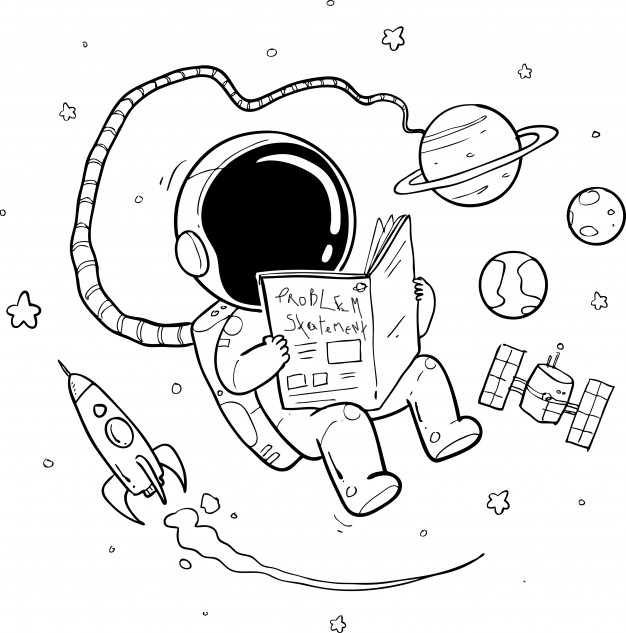 PROBLEM
STATEMENT